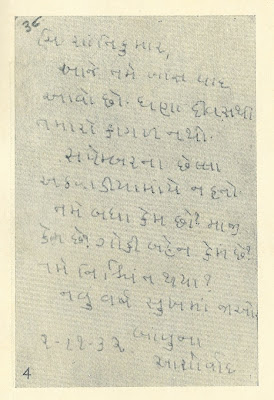 36
ચિ શાંતિકુમાર,
આજે તમે ખાસ યાદ
આવો છો. ઘણા દીવસથી
તમારો કાગળ નથી.
સપ્ટેમ્બરના છેલ્લા
અઠવાડીયામાંયે ન હતો
તમે બધા કેમ છો? માજી
કેમ છે? ગોકી બહેન કેમ છે?
તમે નિશ્ચિંત થયા?
નવુ વર્ષ સુખમાં જાઓ
બાપુના
૨-૧૧-૩૨ આશીર્વાદ
4